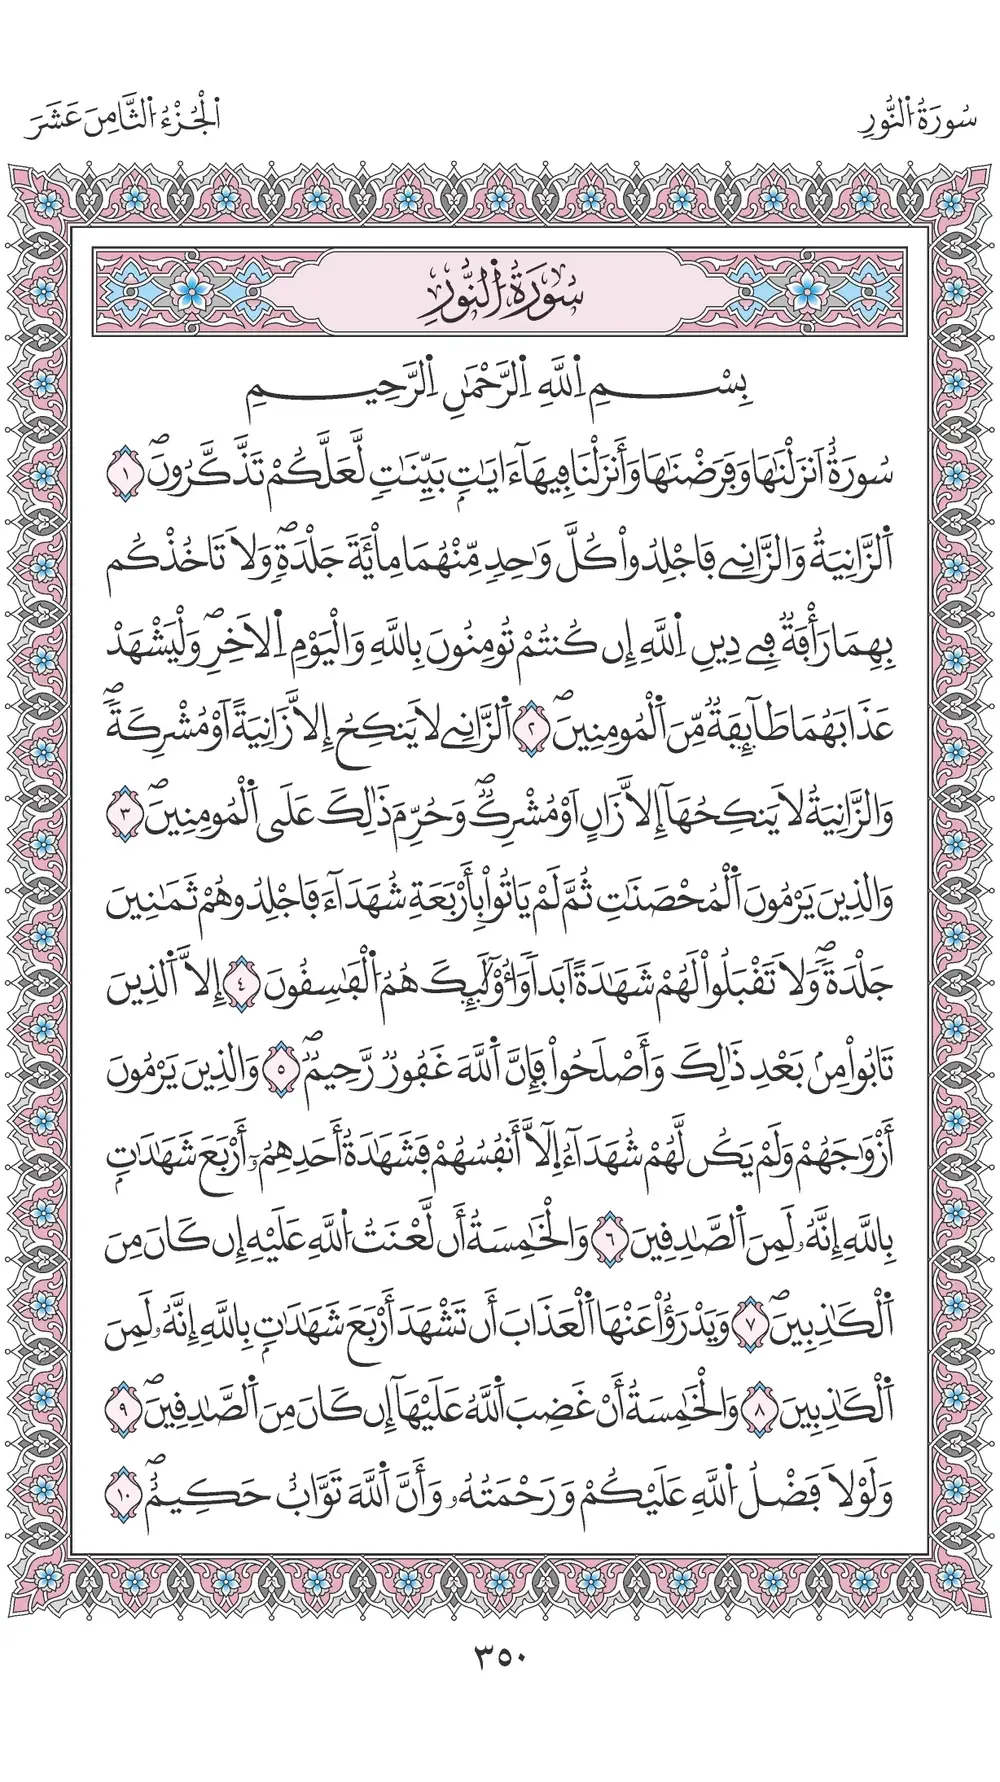 سُورَةُ اُ۬لنُّورِ
اَ۬لْجُزْءُ اُ۬لثَّامِنَ عَشَرَ
سُورَةُ اُ۬لنُّورِ
بِسْمِ اِ۬للَّهِ اِ۬لرَّحْمَٰنِ اِ۬لرَّحِيمِ
سُورَةٌ اَنزَلْنَٰهَا وَفَرَضْنَٰهَا وَأَنزَلْنَا فِيهَآ ءَايَٰتِۢ بَيِّنَٰتٖ لَّعَلَّكُمْ تَذَّكَّرُونَۖ ١
اَ۬لزَّانِيَةُ وَالزَّانِے فَاجْلِدُواْ كُلَّ وَٰحِدٖ مِّنْهُمَا مِاْئَةَ جَلْدَةٖۖ وَلَا تَاخُذْكُم
بِهِمَا رَأْفَةٞ فِے دِينِ اِ۬للَّهِ إِن كُنتُمْ تُومِنُونَ بِاللَّهِ وَالْيَوْمِ اِ۬لَاخِرِۖ وَلْيَشْهَدْ
عَذَابَهُمَا طَآئِفَةٞ مِّنَ اَ۬لْمُومِنِينَۖ ٢ اَ۬لزَّانِے لَا يَنكِحُ إِلَّا زَانِيَةً اَوْ مُشْرِكَةٗۖ
وَالزَّانِيَةُ لَا يَنكِحُهَآ إِلَّا زَانٍ اَوْ مُشْرِكٞۖ وَحُرِّمَ ذَٰلِكَ عَلَى اَ۬لْمُومِنِينَۖ ٣
وَالذِينَ يَرْمُونَ اَ۬لْمُحْصَنَٰتِ ثُمَّ لَمْ يَاتُواْ بِأَرْبَعَةِ شُهَدَآءَ فَاجْلِدُوهُمْ ثَمَٰنِينَ
جَلْدَةٗۖ وَلَا تَقْبَلُواْ لَهُمْ شَهَٰدَةً اَبَداٗۖ وَأُوْلَٰٓئِكَ هُمُ اُ۬لْفَٰسِقُونَ ٤ إِلَّا اَ۬لذِينَ
تَابُواْ مِنۢ بَعْدِ ذَٰلِكَ وَأَصْلَحُواْ فَإِنَّ اَ۬للَّهَ غَفُورٞ رَّحِيمٞۖ ٥ وَالذِينَ يَرْمُونَ
أَزْوَٰجَهُمْ وَلَمْ يَكُن لَّهُمْ شُهَدَآءُ اِ۪لَّآ أَنفُسُهُمْ فَشَهَٰدَةُ أَحَدِهِمُۥٓ أَرْبَعَ شَهَٰدَٰتِۢ
بِاللَّهِ إِنَّهُۥ لَمِنَ اَ۬لصَّٰدِقِينَ ٦ وَالْخَٰمِسَةُ أَن لَّعْنَتُ اُ۬للَّهِ عَلَيْهِ إِن كَانَ مِنَ
اَ۬لْكَٰذِبِينَۖ ٧ وَيَدْرَؤُاْ عَنْهَا اَ۬لْعَذَابَ أَن تَشْهَدَ أَرْبَعَ شَهَٰدَٰتِۢ بِاللَّهِ إِنَّهُۥ لَمِنَ
اَ۬لْكَٰذِبِينَ ٨ وَالْخَٰمِسَةُ أَنْ غَضِبَ اَ۬للَّهُ عَلَيْهَآ إِن كَانَ مِنَ اَ۬لصَّٰدِقِينَۖ ٩
وَلَوْلَا فَضْلُ اُ۬للَّهِ عَلَيْكُمْ وَرَحْمَتُهُۥ وَأَنَّ اَ۬للَّهَ تَوَّابٌ حَكِيمٌۖ ١٠
٣٥٠